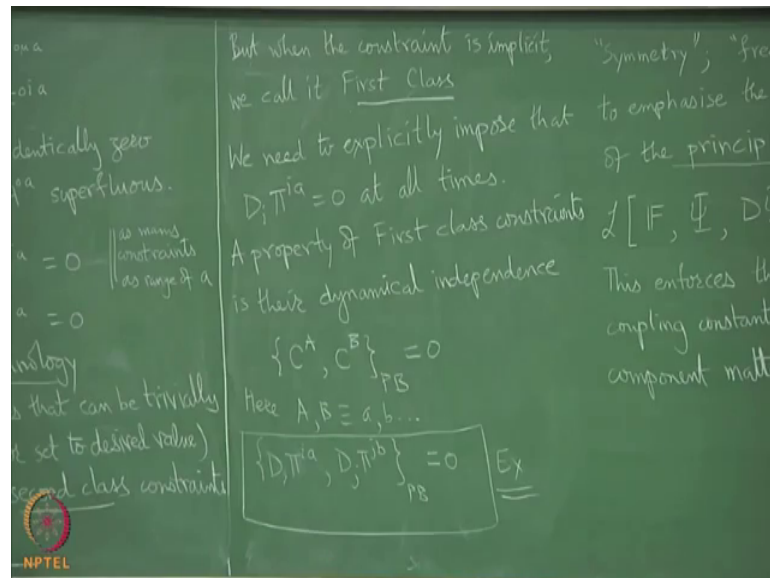 dentically zero
superfluous.
= 0 || as many
constraints
as range of a
= 0
nology
s that can be trivially
set to desired value)
second class constraints
But when the constraint is implicit,
we call it First Class
We need to explicitly impose that
D_i π^{ia} = 0 at all times.
A property of First class constraints
is their dynamical independence
{C^A, C^B}_{PB} = 0
Here A, B ≡ a, b...
{D_i π^{ia}, D_j π^{jb}}_{PB} = 0 Ex
"Symmetry"; "free
to emphasise the
of the princip
L[F, Ψ, D^i
This enforces th
coupling constant
component matt
NPTEL